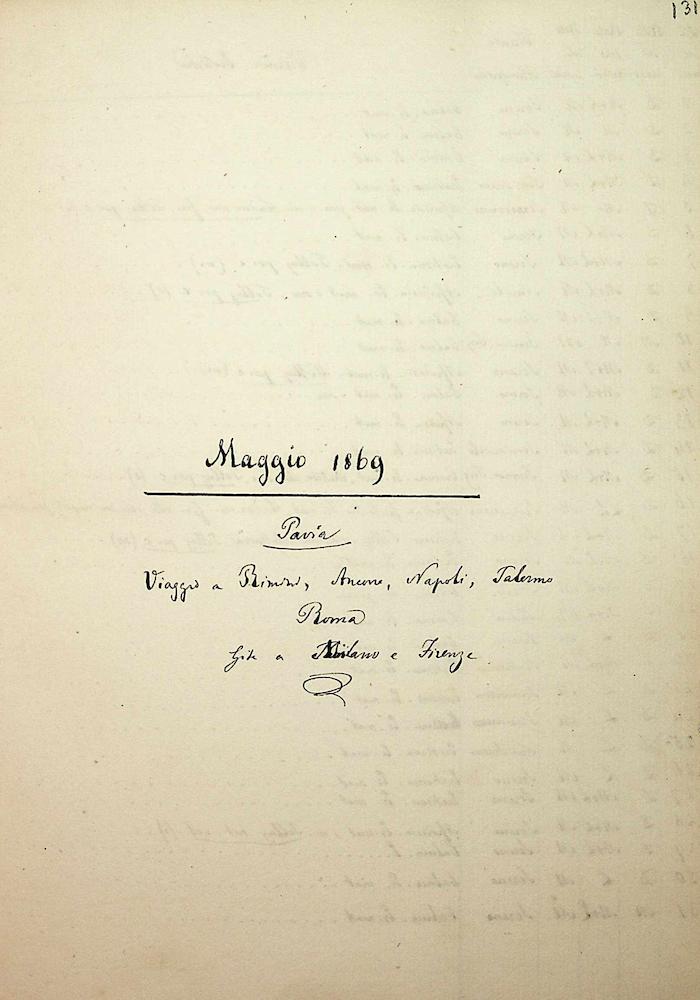 131
Maggio 1869
Pavia
Viaggio a Rimini, Ancona, Napoli, Palermo
Roma
Gite a Milano e Firenze